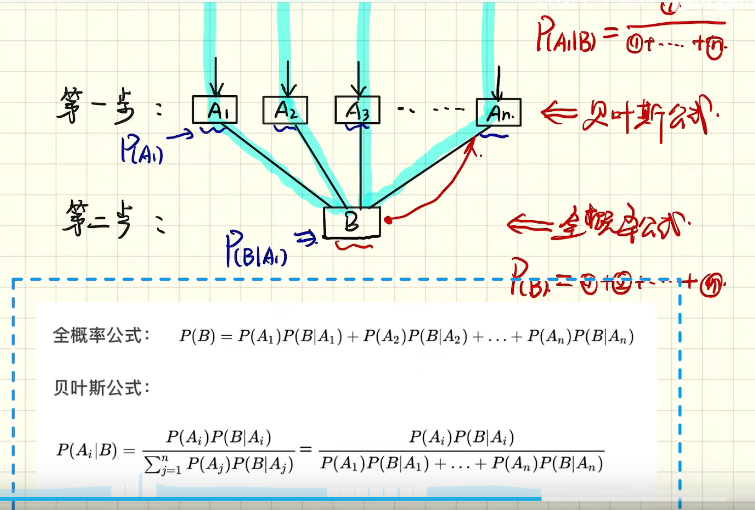 ①
P(A₁|B) = ①+……+ⓝ
第一步: A₁ A₂ A₃ …… An. ⇐ 贝叶斯公式.
P(A₁)
第二步: B ⇐ 全概率公式.
P(B|A₁)
P(B) = ①+②+…+ⓝ.
全概率公式: P(B) = P(A₁)P(B|A₁) + P(A₂)P(B|A₂) + … + P(Aₙ)P(B|Aₙ)
贝叶斯公式:
P(Aᵢ|B) = P(Aᵢ)P(B|Aᵢ) / ∑ⁿⱼ₌₁ P(Aⱼ)P(B|Aⱼ) = P(Aᵢ)P(B|Aᵢ) / P(A₁)P(B|A₁) + … + P(Aₙ)P(B|Aₙ)